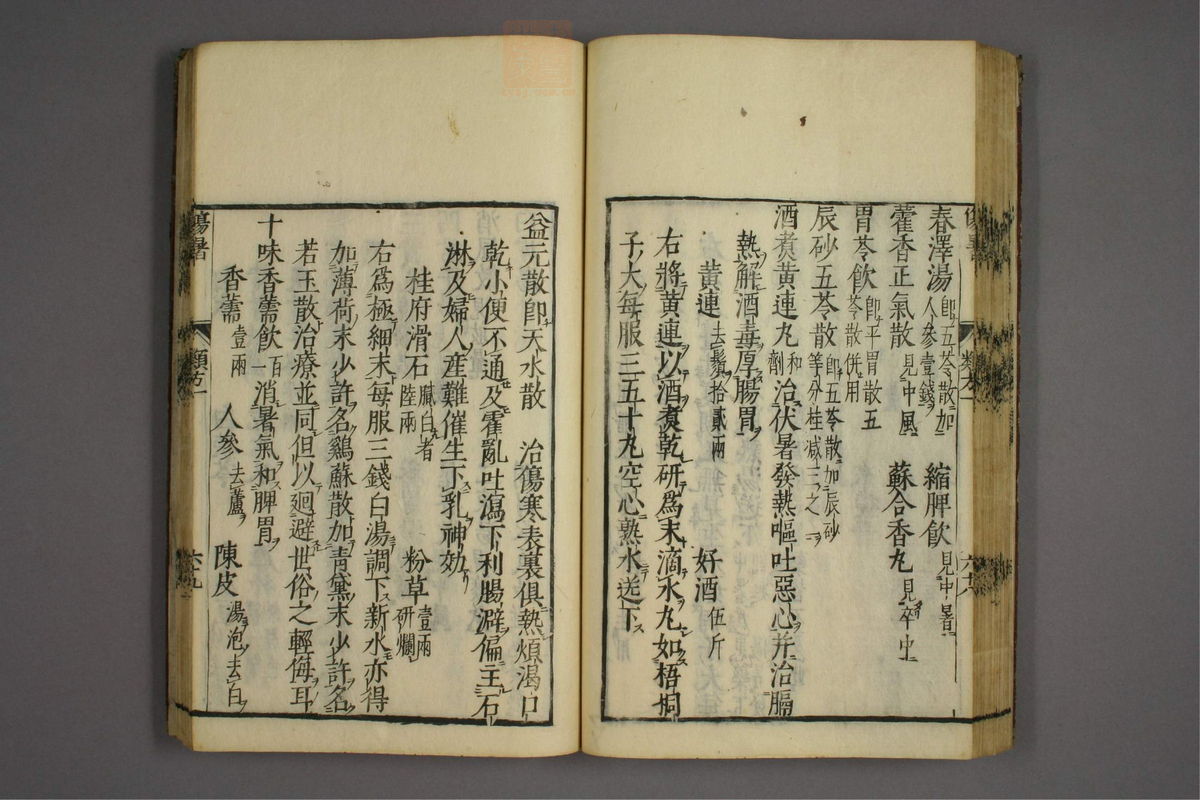 春澤湯 即五苓散加人參壹錢 縮脾飲 見中暑
藿香正氣散 見中風 蘇合香丸 見卒中
胃苓飲 即平胃散五苓散併用
辰砂五苓散 即五苓散加辰砂等分桂減三之一
酒煑黄連丸 和劑 治伏暑發熱嘔吐惡心并治膈
熱解酒毒厚腸胃
黄連 去鬚拾貳兩 好酒 伍斤
右將黄連以酒煑乾研爲末滴水丸如梧桐
子大每服三五十丸空心熟水送下
傷暑 類方一 六十九
益元散即天水散 治傷寒表裏俱熱煩渴口
乾小便不通及霍亂吐瀉下利腸澼偏主石
淋及婦人産難催生下乳神効
桂府滑石 膩白者陸兩 粉草 壹兩研爛
右爲極細末每服三錢白湯調下新水亦得
加薄荷末少許名鷄蘇散加青黛末少許名
若玉散治療並同但以廻避世俗之輕侮耳
十味香薷飲 百一 消暑氣和脾胃
香薷 壹兩 人參 去蘆 陳皮 湯泡去白